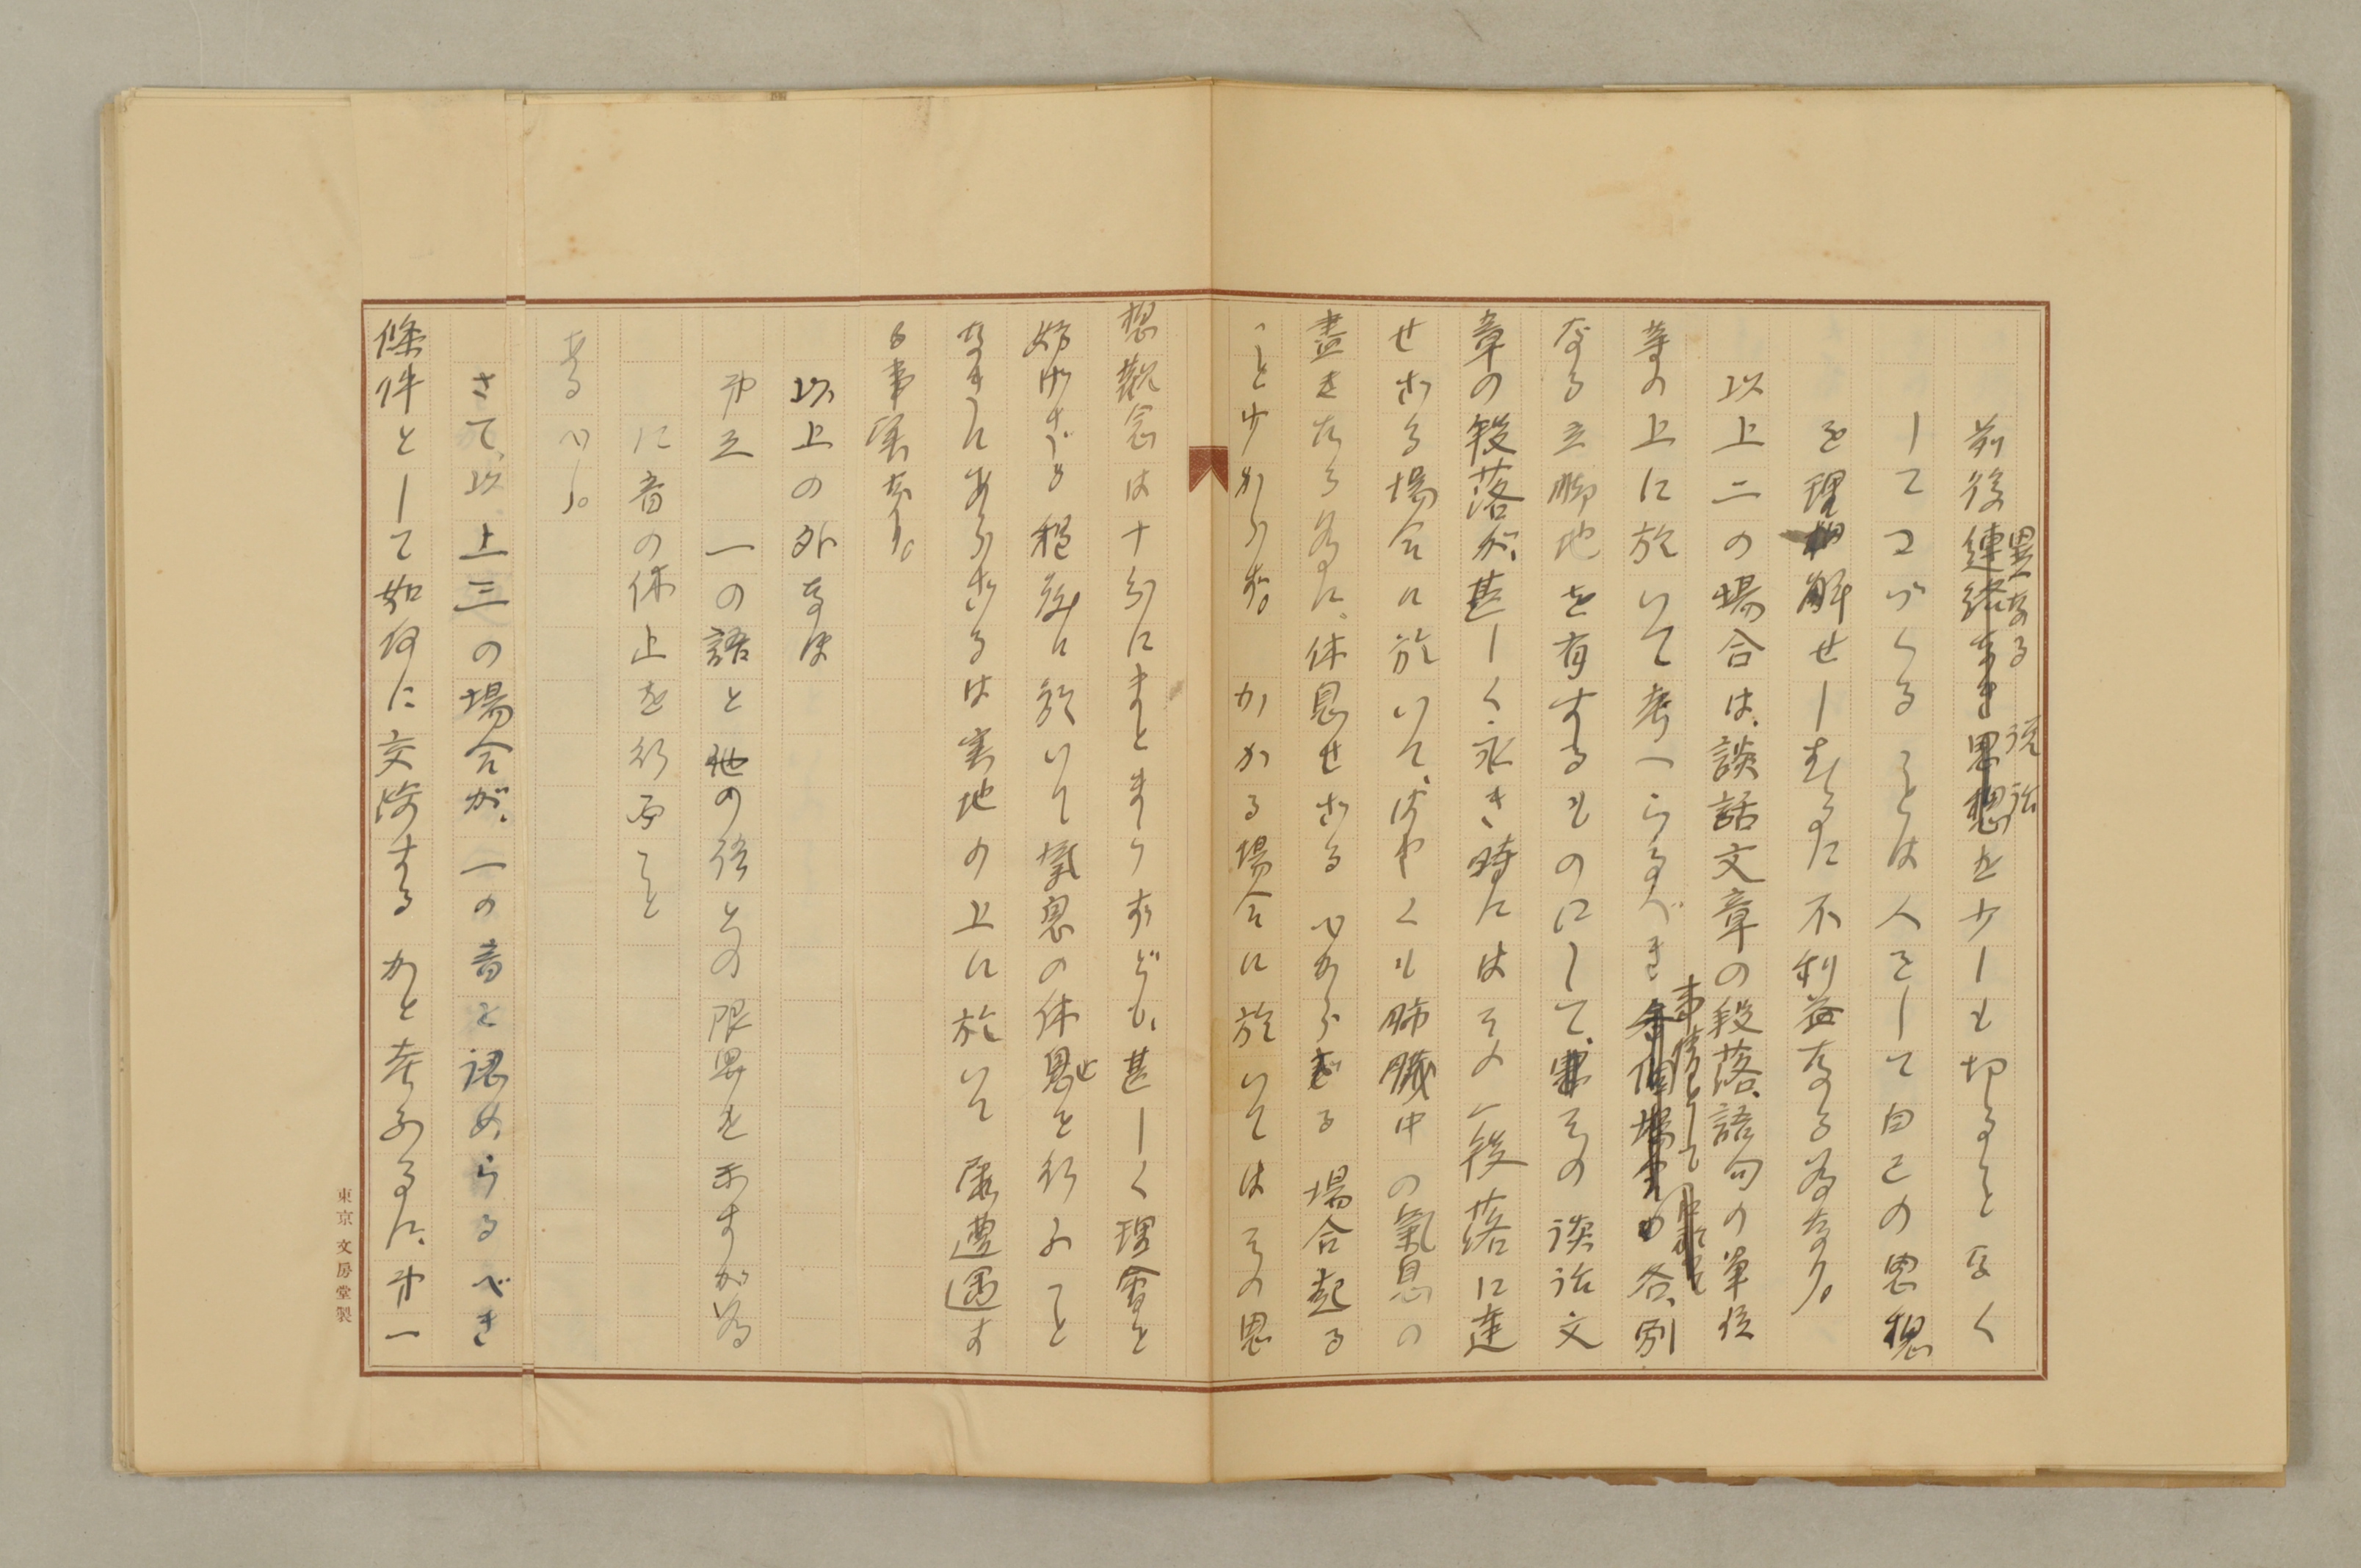 前後異なる談話を少しも切ることなく
してつづくることは人をして自己の思想
を理解せしむるに不利益なる為なり。
以上二の場合は、談話文章の段落、語句の單位
等の上に於いて考へらるべき事情にして各、別
なる立脚地を有するものにして、その談話文
章の段落が、甚しく永き時にはその一段落に達
せざる場合に於いて、はやくも肺臓中の氣息の
盡きたる為に、休息せざるべからざる場合起る
こと少からず。かかる場合に於いてはその思
想観念は十分にまとまらずども、甚しく理會を
妨げざる程度に於いて氣息の休止を行ふこと
なきにあらざるは実地の上に於いて屡遭遇す
る事実なり。
以上の外なほ
第三 一の語と他の語との限界を示すが為
に音の休止を行ふこと
あるべし。
さて、以上三の場合が、一の音と認めらるべき
條件として如何に交渉するかと考ふるに、第一
東京 文房堂製